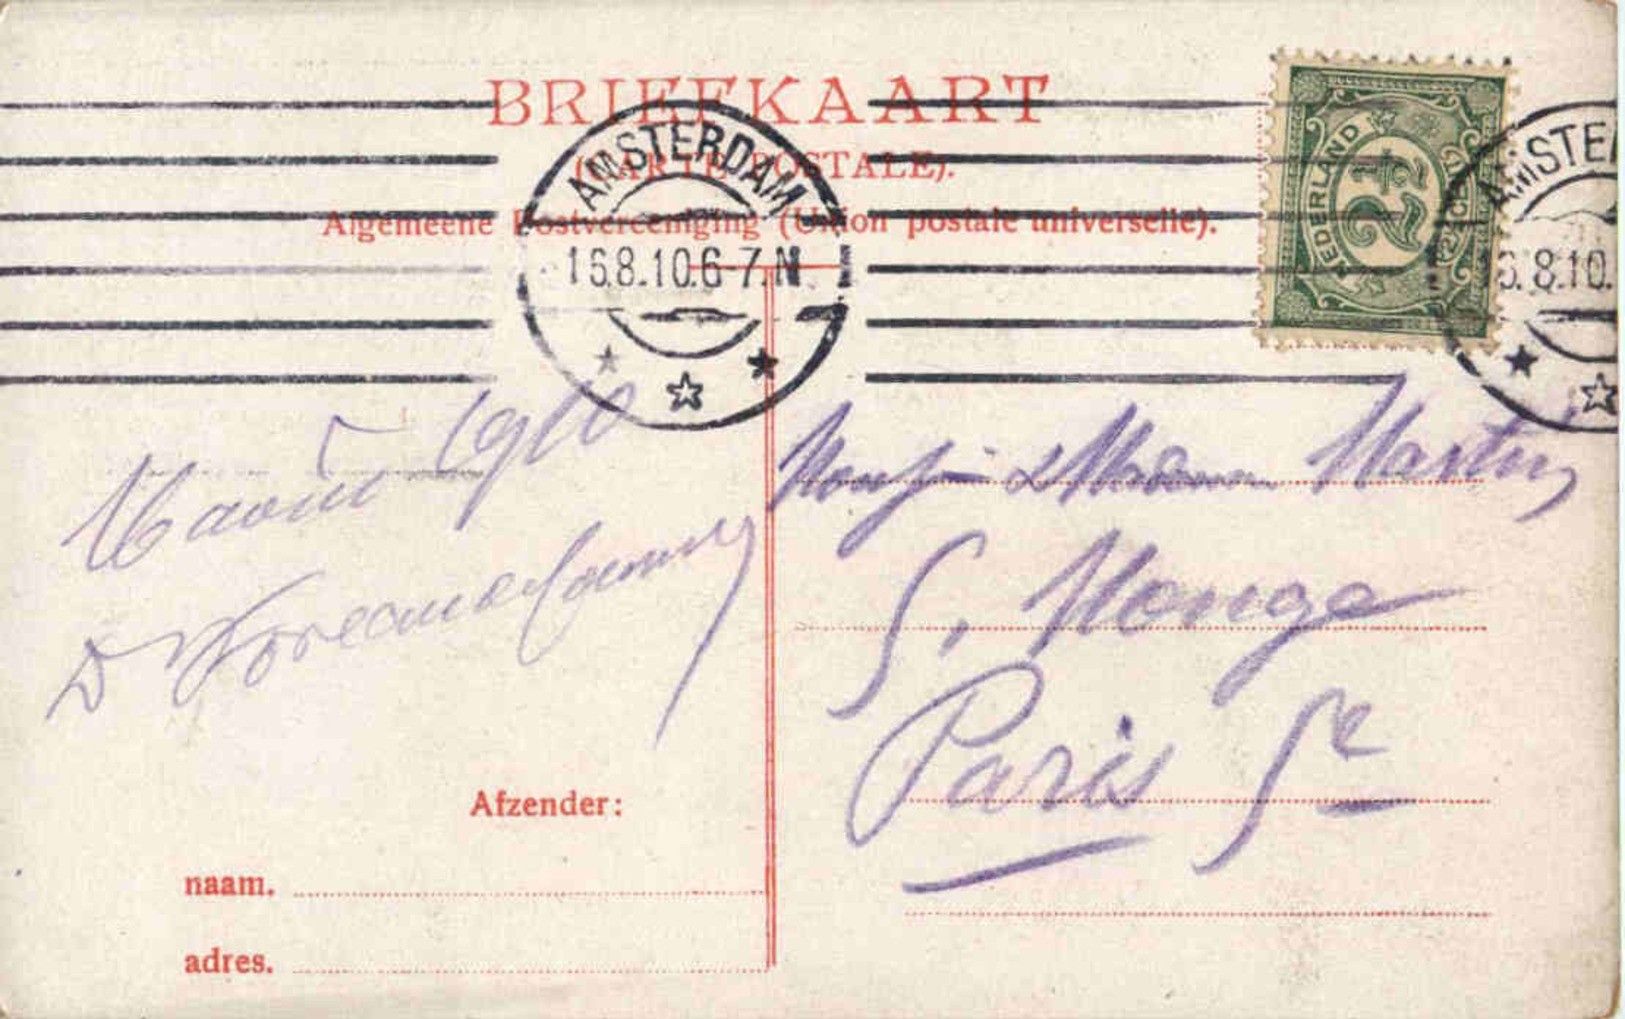 BRIEFKAART
(CARTE POSTALE).
Algemeene Postvereeniging (Union postale universelle).
AMSTERDAM
16.8.10.6-7.N
NEDERLAND
2½
CENT
AMSTE
6.8.10.
16 août 1910
D
& Madame Martin
5, Monge
Paris 5e
Afzender:
naam.
adres.